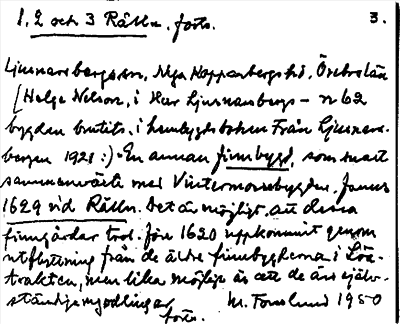 1, 2 och 3 Rålln. forts. 3.
Ljusnarsbergs sn, Nya Kopparbergs hd, Örebro län
[Helge Nelson, i Hur Ljusnarsbergs-
bygden brutits, i hembygdsboken Från Ljusnars-
bergen 1921:) En annan finnbygd, som snart
sammanväxte med Vintermossebygden, fanns
1629 vid Rålln. Det är möjligt, att dessa
finngårdar trol. före 1620 uppkommit genom
utflyttning från de äldre finnbygderna i
trakten, men lika möjligt är att de äro själv-
ständiga nyodlingar
forts. 1950